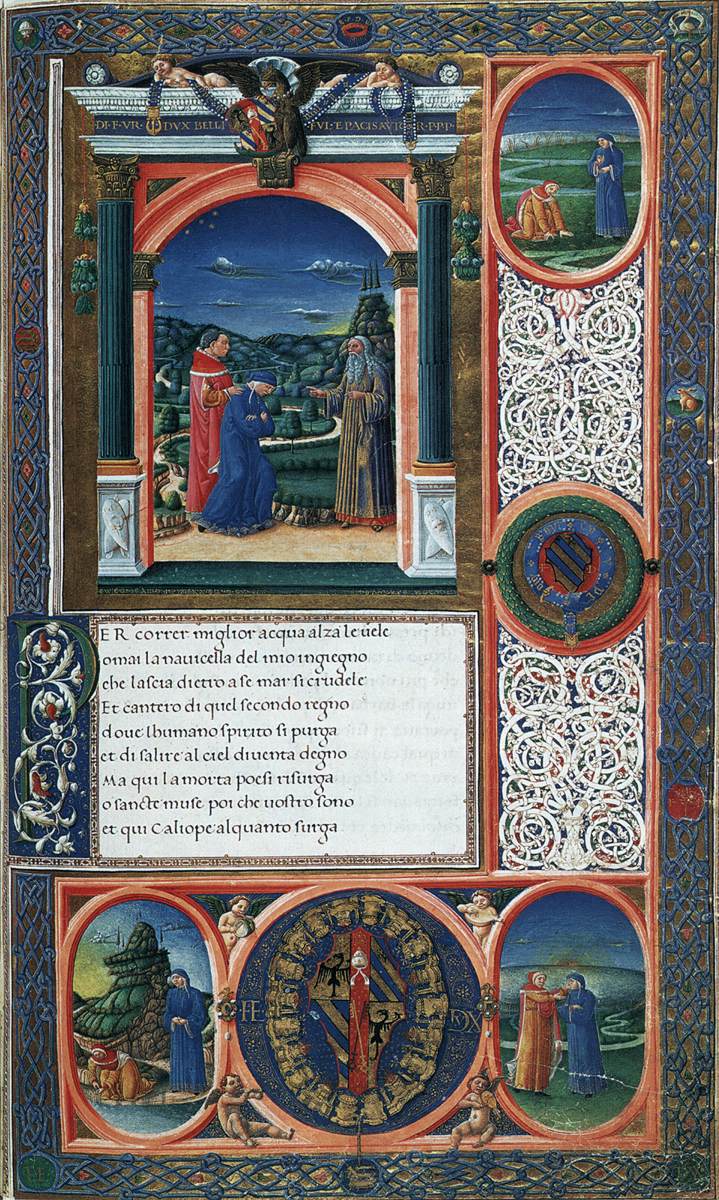 DI·F·VR· DVX BELLI FVL·E PACIS AVTOR·P·P·P·
PER correr miglior acqua alza le uele
omai la nauicella del mio ingiegno
che lascia dietro a se mar si crudele
Et cantero di quel secondo regno
doue lhumano spirito si purga
et di salire al ciel diuenta degno
Ma qui la morta poesi risurga
o sancte muse poi che uostro sono
et qui Caliope alquanto surga
FE DVX